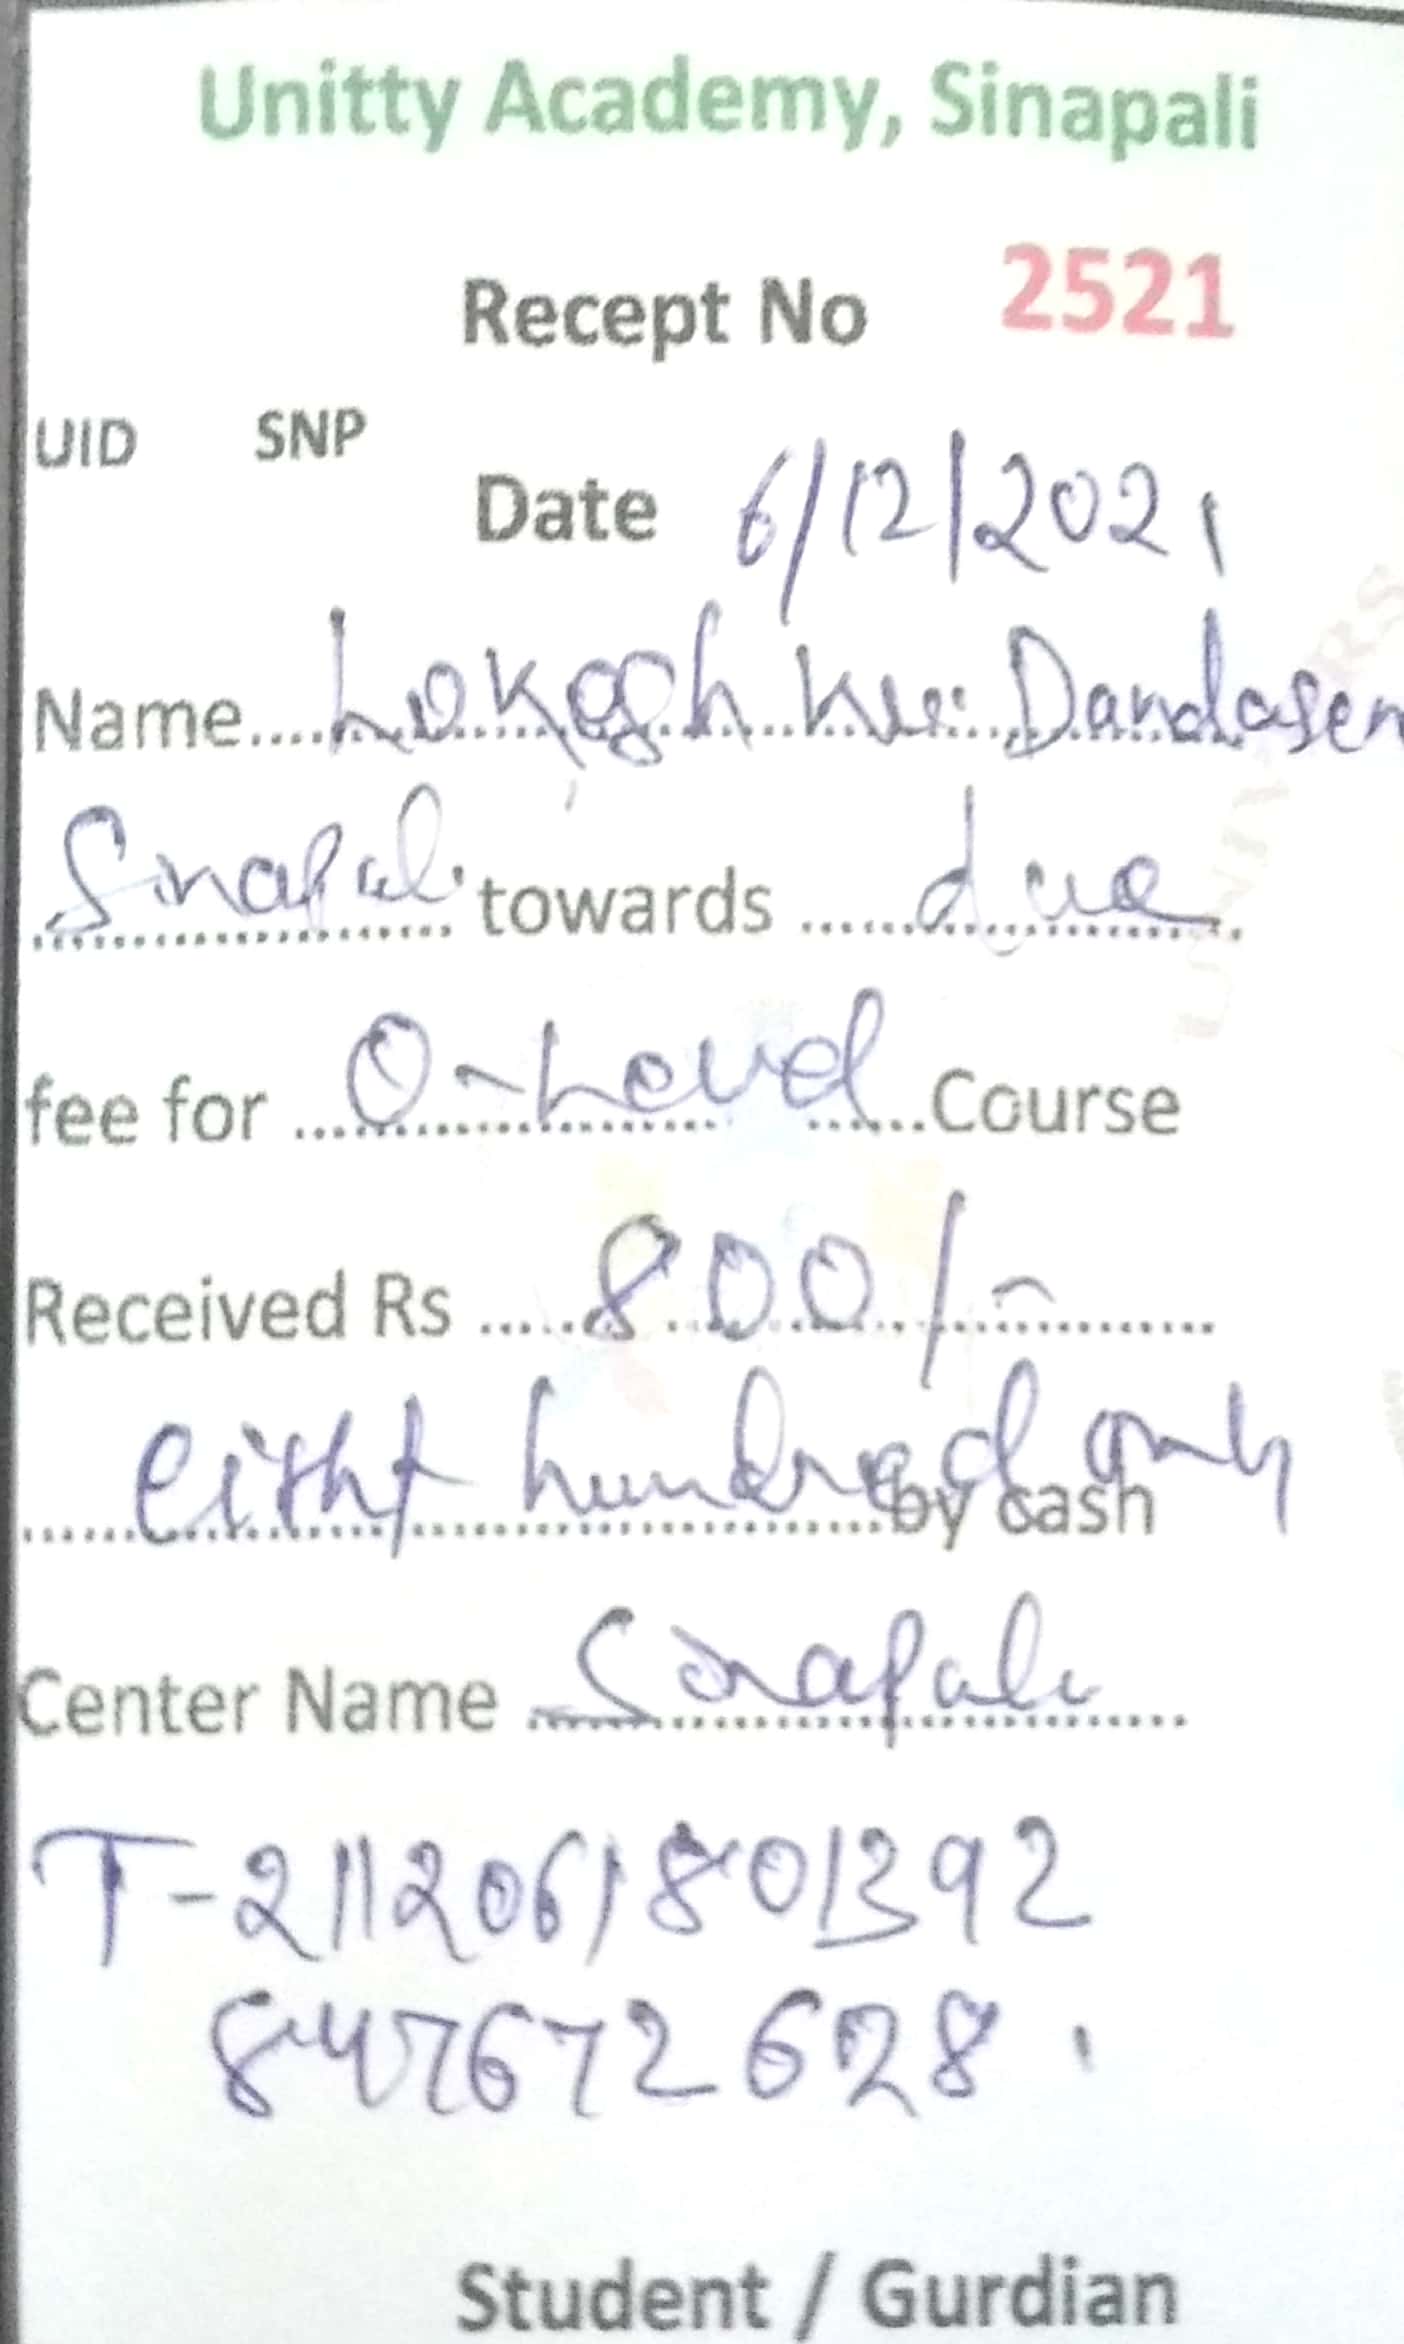 Unitty Academy, Sinapali
Recept No 2521
UID SNP
Date 6/12/2021
Name....Lokesh Ku.. Dandasen
Sinapali towards ......due
fee for ...O-Level......Course
Received Rs .....800/-
eight hundred only
by cash
Center Name Sinapali
T-2112061801392
847672628
Student / Gurdian